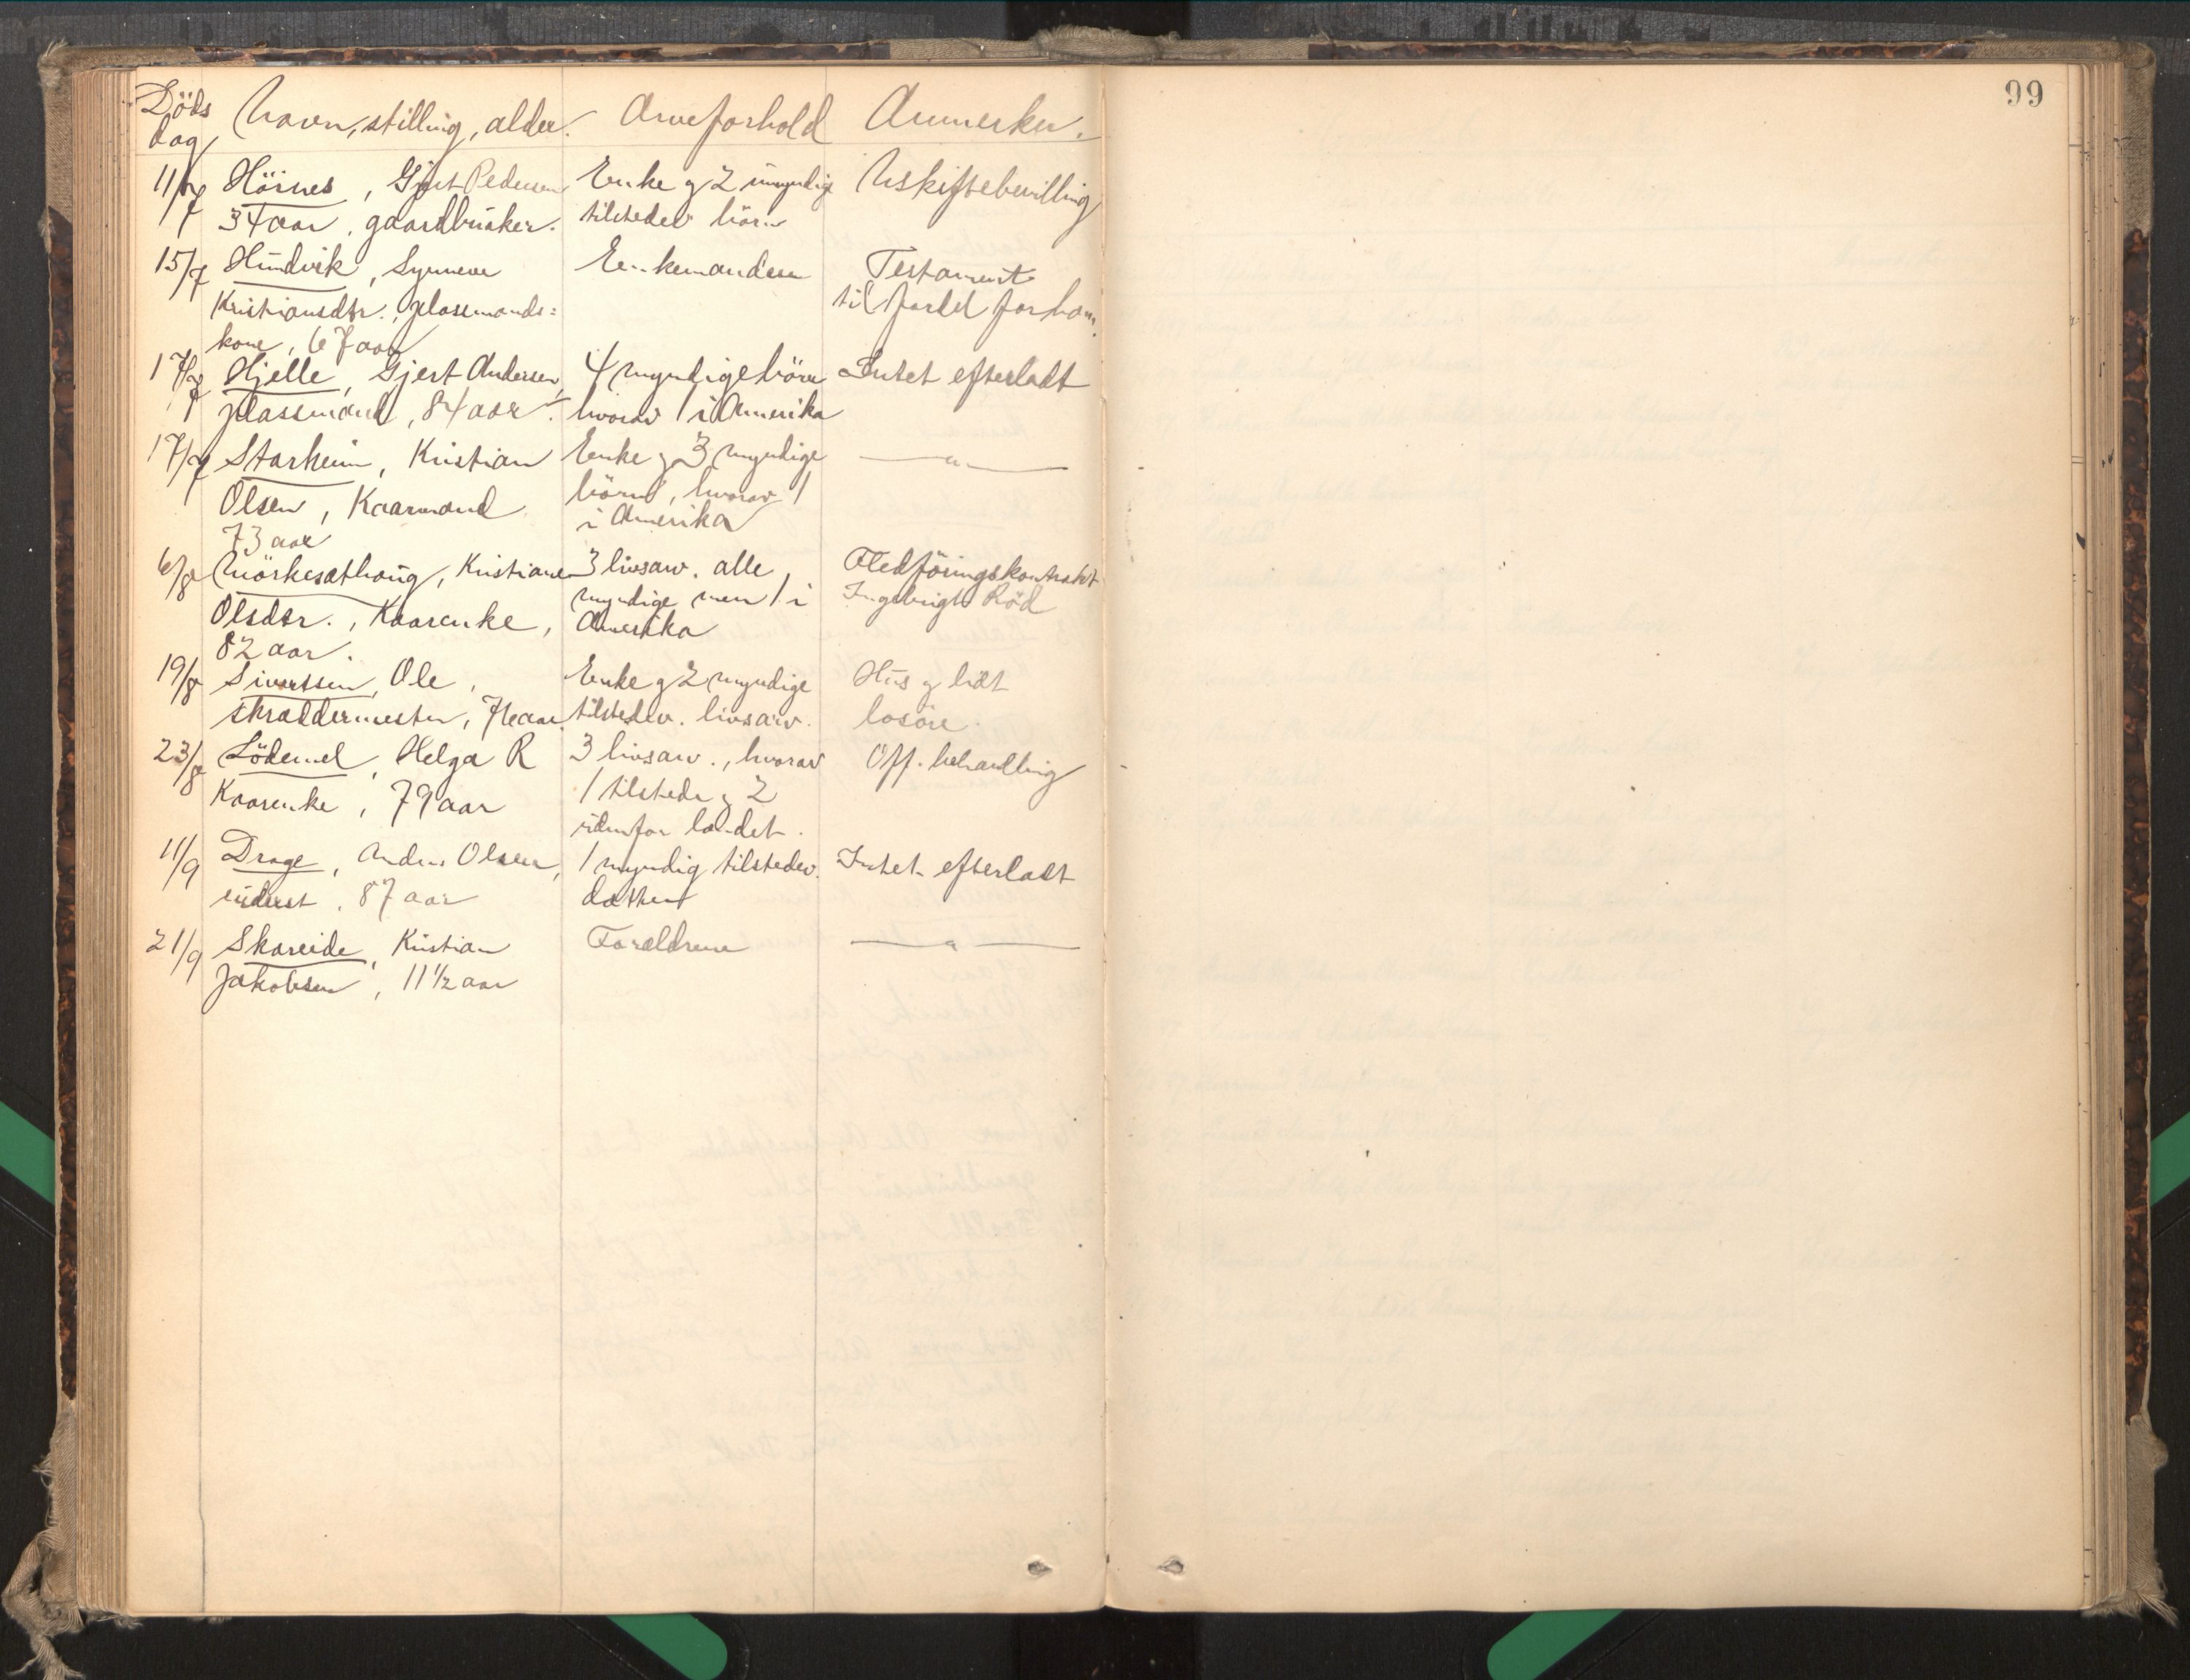 99
Döds
dag
Navn, stilling, alder.
Arveforhold
Anmerkn.
11/7 Hörnes, Gjert Pedersen
34 aar, gaardbruker.
Enke og 2 umyndige
tilstedev. börn
Uskiftebevilling
15/7 Hundvik, Synneve
Kristiansdtr., plassmands=
kone, 67 aar
Enkemanden
Testament
til fordel for ham.
17/7 Hjelle, Gjert Andersen,
plassmand, 84 aar.
4 myndige börn
hvorav 1 i Amerika
Intet efterladt
17/7 Starheim, Kristian
Olsen, Kaarmand
73 aar
Enke og 3 myndige
börn, hvorav 1
i Amerika
—"—
6/8 Mörkesæthaug, Kristiane
Olsdtr., Kaarenke,
82 aar.
3 livsarv. alle
myndige men 1 i
Amerika
Fledföringskontrakt
Ingebrigt Röd
19/8 Sivertsen, Ole,
skræddermester, 76 aar.
Enke og 2 myndige
tilstedev. livsarv.
Hus og lidt
losöre.
23/8 Lödemel, Helga R
Kaarenke, 79 aar
3 livsarv., hvorav
1 tilstede og 2
utenfor landet.
Off. behandling
11/9 Drage, Anders Olsen,
inderst, 87 aar
1 myndig tilstedev.
datter
Intet efterladt
21/9 Skareide, Kristian
Jakobsen, 11 1/2 aar
Forældrene
—"—